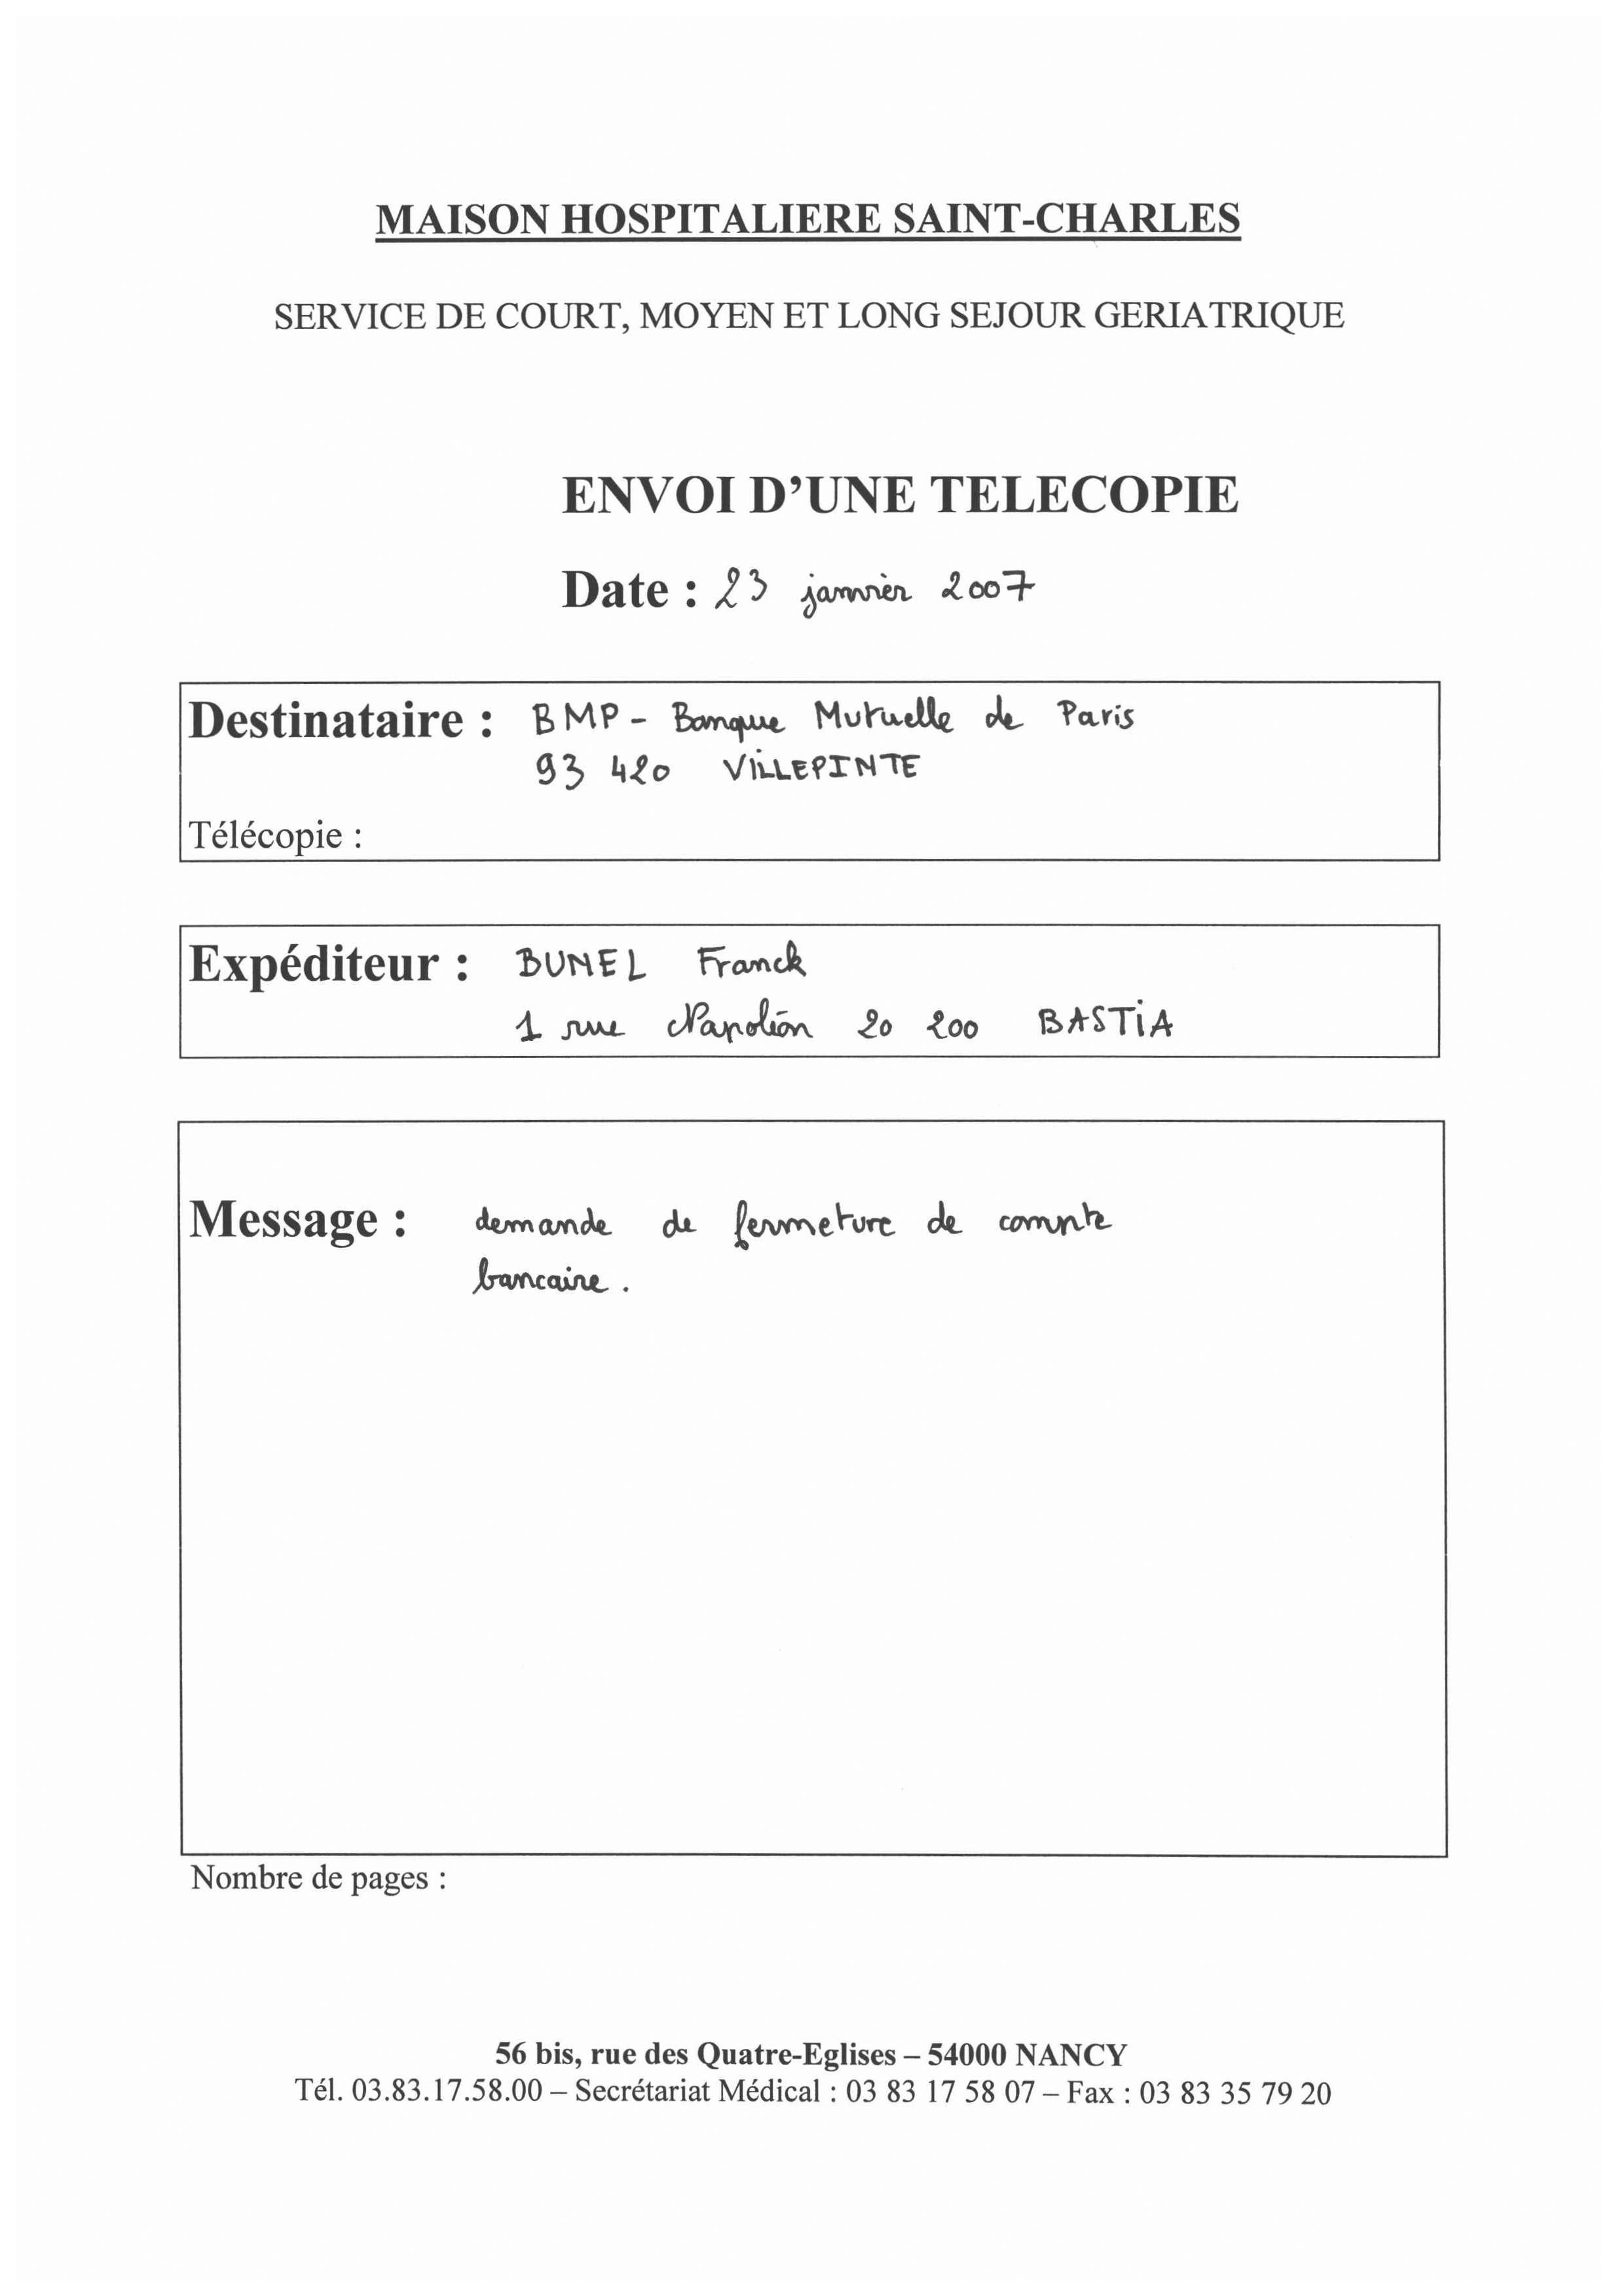 MAISON HOSPITALIERE SAINT-CHARLES
SERVICE DE COURT, MOYEN ET LONG SEJOUR GERIATRIQUE
ENVOI D'UNE TELECOPIE
Date : 23 janvier 2007
Destinataire : BMP - Banque Mutuelle de Paris
93 420 VILLEPINTE
Télécopie :
Expéditeur : BUNEL Franck
1 rue Napoléon 20 200 BASTIA
Message : demande de fermeture de compte
bancaire.
Nombre de pages :
56 bis, rue des Quatre-Eglises – 54000 NANCY
Tél. 03.83.17.58.00 – Secrétariat Médical : 03 83 17 58 07 – Fax : 03 83 35 79 20